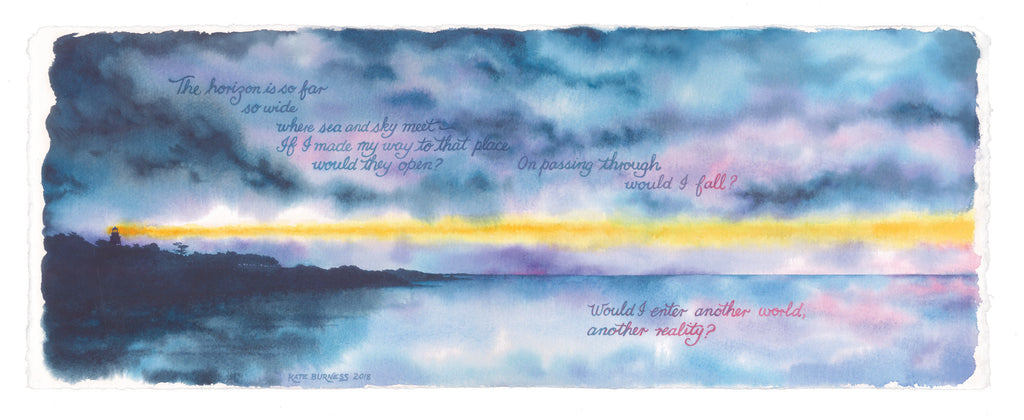 The horizon is so far
so wide
where sea and sky meet
If I made my way to that place
would they open?
On passing through
would I fall?
Would I enter another world,
another reality?
KATE BURNESS 2018